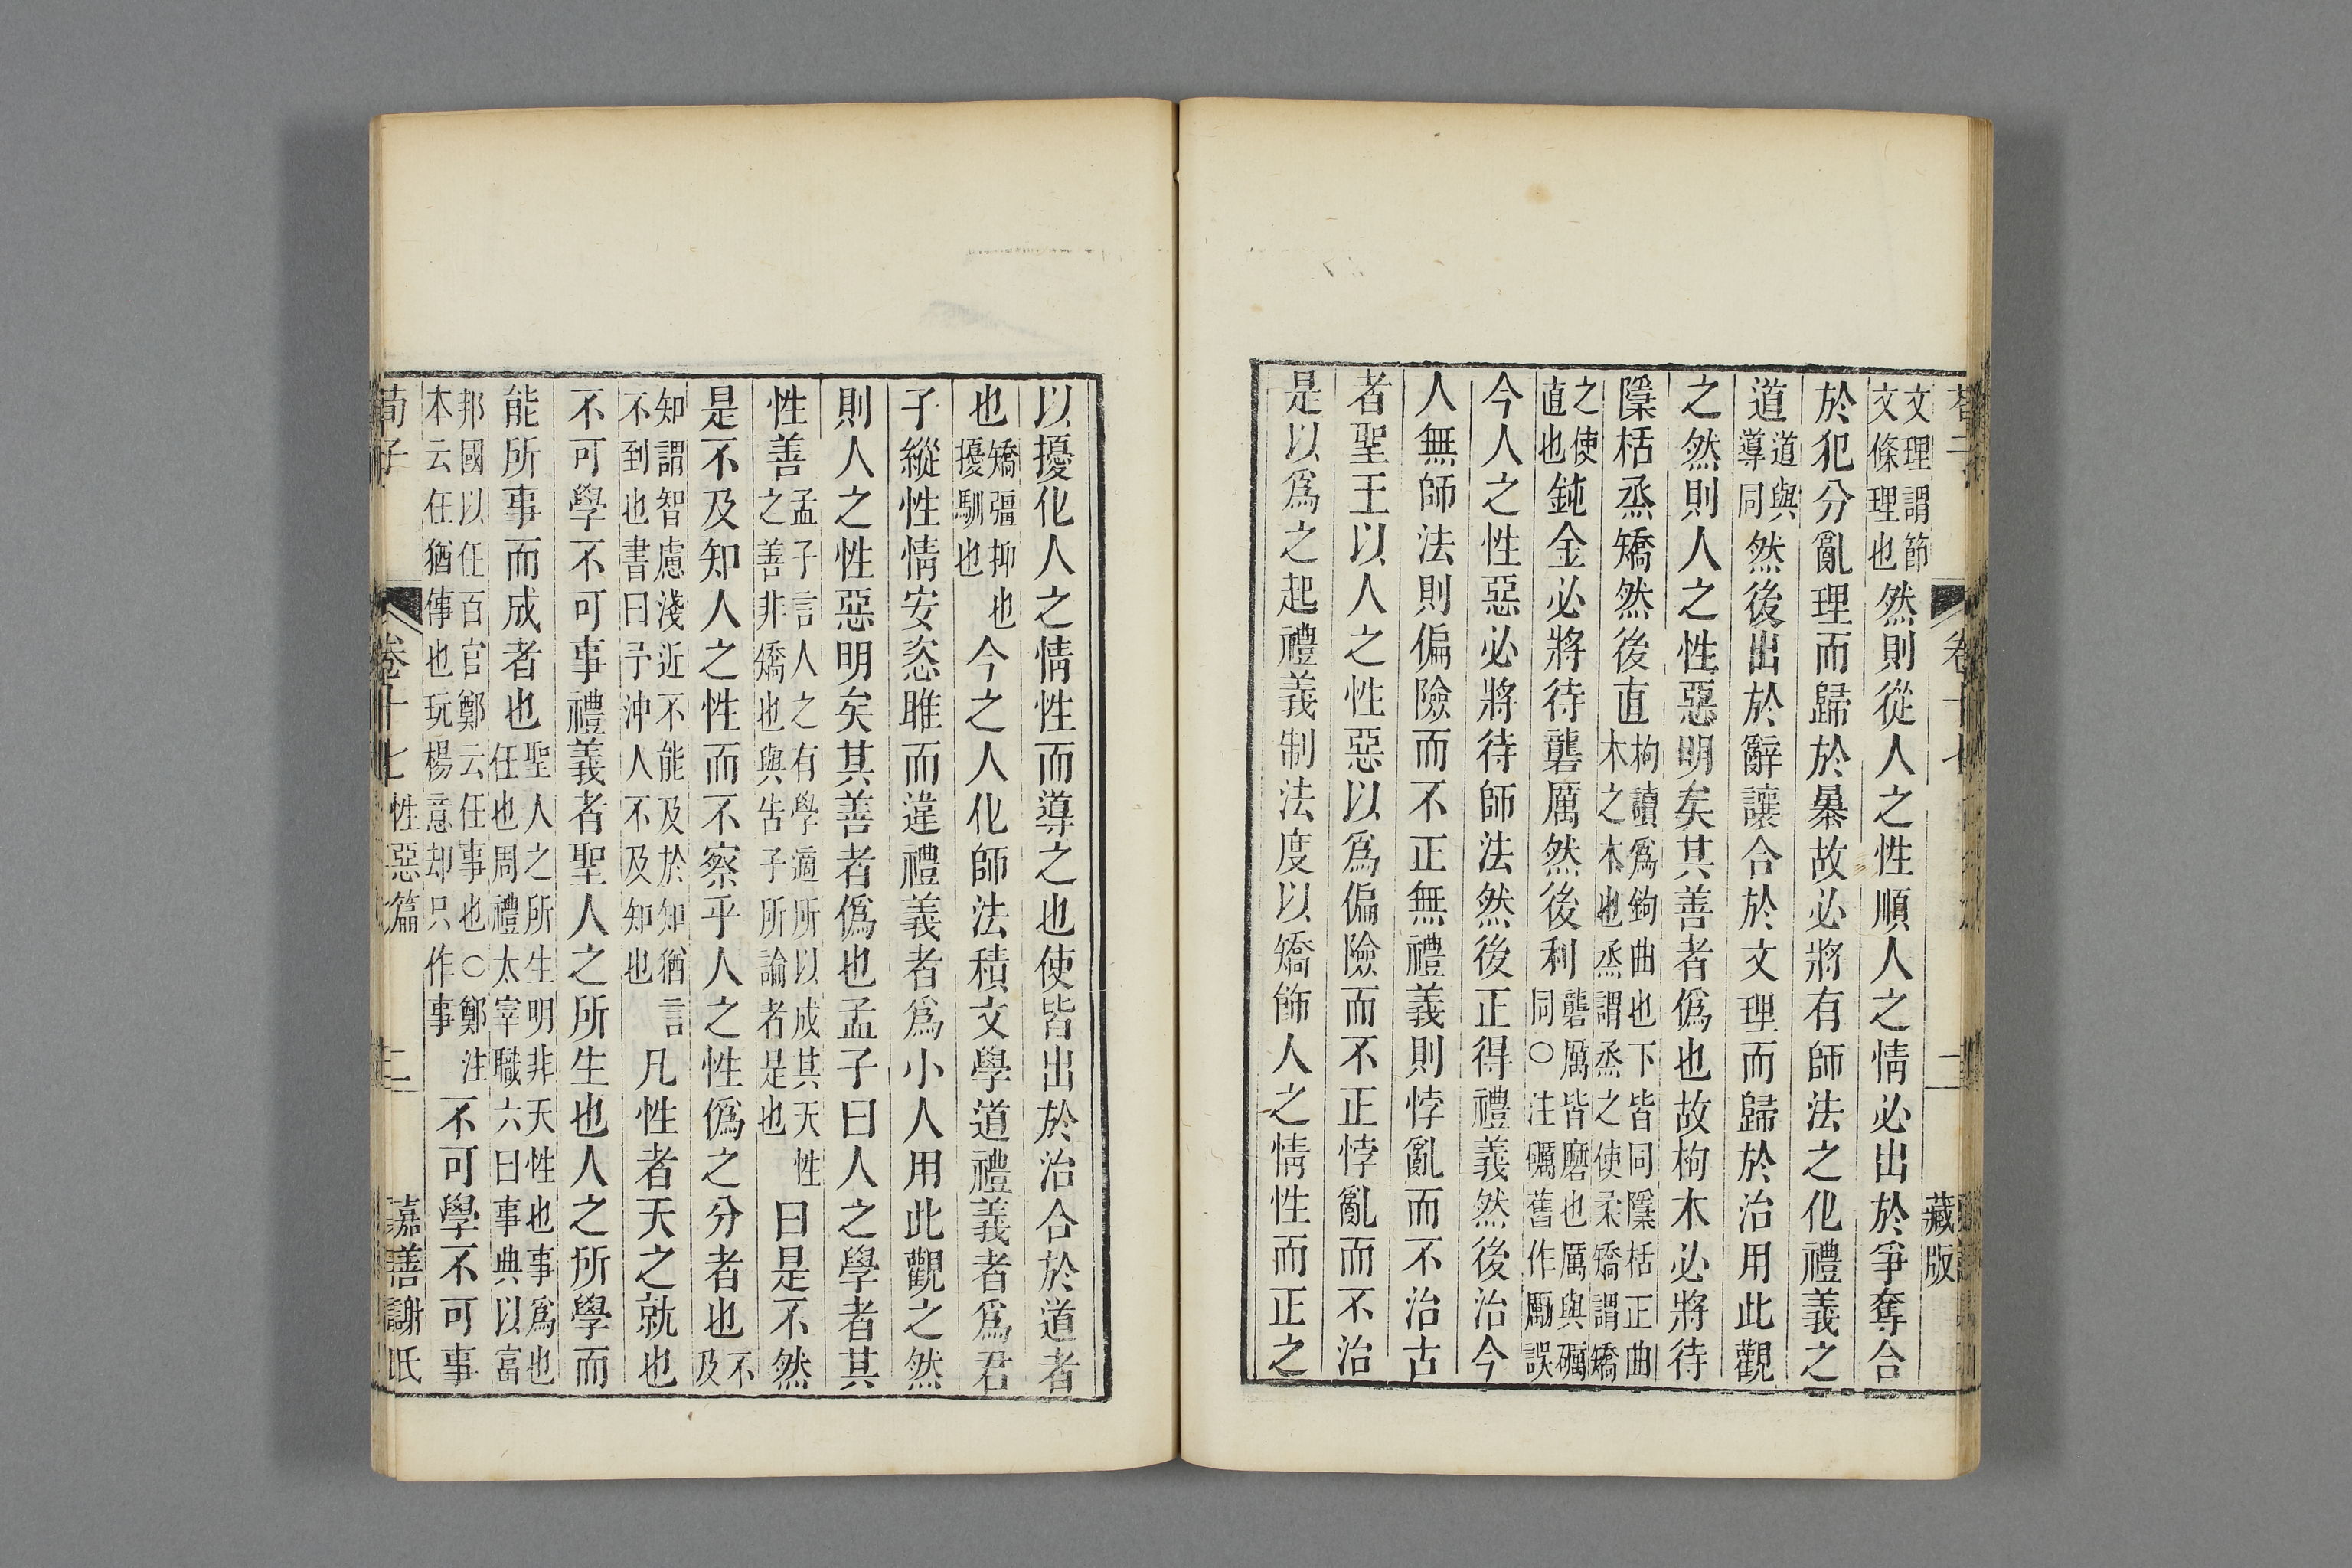 文理謂節文條理也然則從人之性順人之情必出於爭奪合
於犯分亂理而歸於暴故必將有師法之化禮義之
道道與導同然後出於辭讓合於文理而歸於治用此觀
之然則人之性惡明矣其善者僞也故枸木必將待
檃栝烝矯然後直枸讀爲鉤曲也下皆同檃栝正曲木之木也烝謂烝之使柔矯謂矯
之使直也鈍金必將待礱厲然後利礱厲皆磨也厲與礪同○注礪舊作勵誤
今人之性惡必將待師法然後正得禮義然後治今
人無師法則偏險而不正無禮義則悖亂而不治古
者聖王以人之性惡以爲偏險而不正悖亂而不治
是以爲之起禮義制法度以矯飾人之情性而正之
藏版
以擾化人之情性而導之也使皆出於治合於道者
也矯彊抑也擾馴也今之人化師法積文學道禮義者爲君
子縱性情安恣睢而違禮義者爲小人用此觀之然
則人之性惡明矣其善者僞也孟子曰人之學者其
性善孟子言人之有學適所以成其天性之善非矯也與告子所論者是也曰是不然
是不及知人之性而不察乎人之性僞之分者也不及
知謂智慮淺近不能及於知猶言不到也書曰予沖人不及知也凡性者天之就也
不可學不可事禮義者聖人之所生也人之所學而
能所事而成者也聖人之所生明非天性也事爲也任也周禮太宰職六曰事典以富
邦國以任百官鄭云任事也○鄭注本云任猶傳也玩楊意却只作事不可學不可事
荀子 卷十七 性惡篇 二 嘉善謝氏